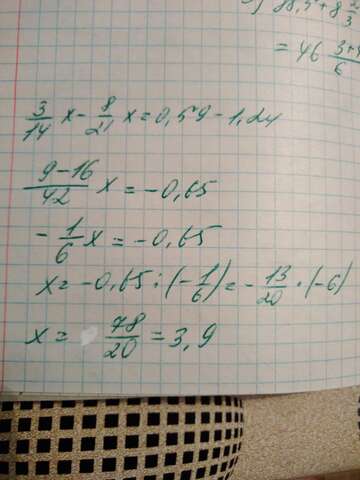 38,5+8 2/3
= 46 3+4/6
3/14 x - 8/21 x = 0,59 - 1,24
9-16/42 x = -0,65
- 1/6 x = -0,65
x = -0,65 : (- 1/6) = - 13/20 · (-6)
x = 78/20 = 3,9